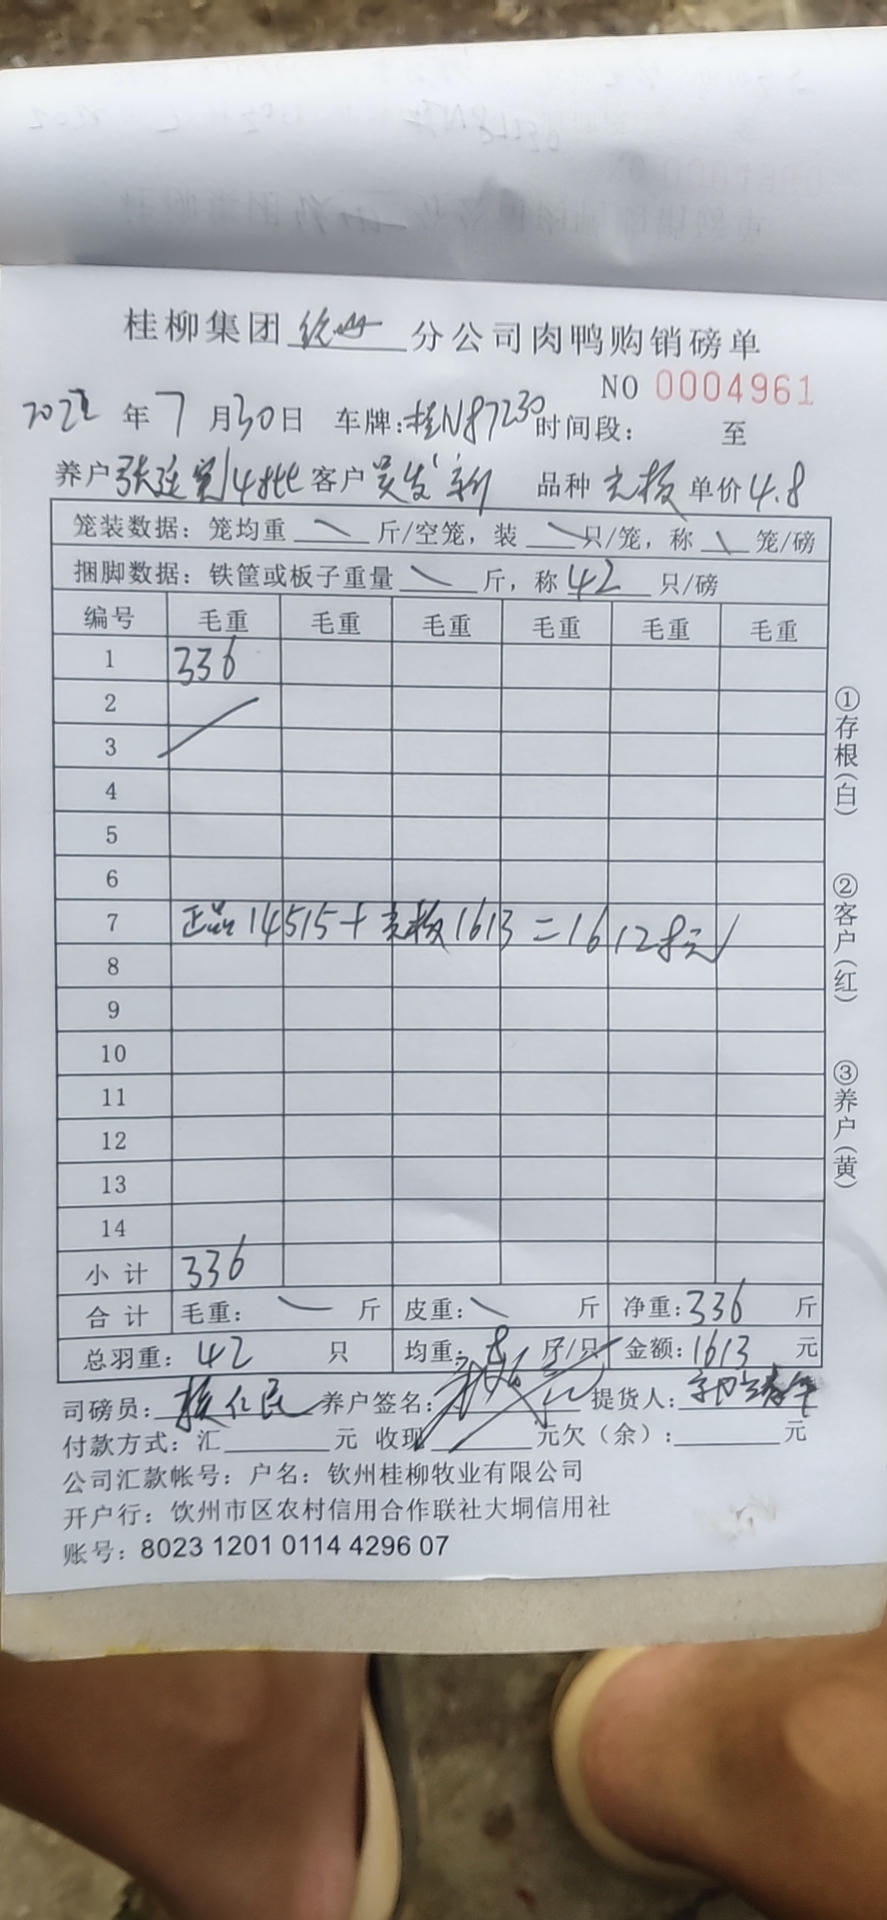 桂柳集团 分公司肉鸭购销磅单
NO 0004961
2022 年 7 月 30 日 车牌:桂N87230 时间段: 至
养户 张廷 4批 客户 吴发新 品种 光板 单价 4.8
笼装数据: 笼均重 斤/空笼, 装 只/笼, 称 笼/磅
捆脚数据: 铁筐或板子重量 斤, 称 42 只/磅
编号 毛重 毛重 毛重 毛重 毛重 毛重
1 336
2
3
4
5
6
7 正品14515+光板1613=16128元
8
9
10
11
12
13
14
小计 336
合计 毛重: 斤 皮重: 斤 净重: 336 斤
总羽重: 42 只 均重: 8 斤/只 金额: 1613 元
司磅员: 养户签名: 提货人:
付款方式: 汇 元 收现 元欠(余): 元
公司汇款帐号: 户名: 钦州桂柳牧业有限公司
开户行: 饮州市区农村信用合作联社大垌信用社
账号: 8023 1201 0114 4296 07
①存根(白)
②客户(红)
③养户(黄)